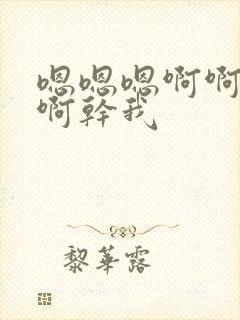 嗯嗯嗯啊啊
啊幹我
黎華露